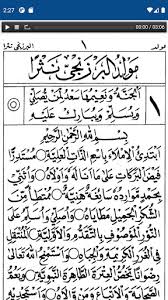 2:27
البرزنجى نثرا ١ مولد
مولد البرزنجى نثرا
١ الجنة ونعيمها سعد لمن يصلي
ويسلم ويبارك عليه
بسم الله الرحمن الرحيم
ابتدئ الإملاء باسم الذات العلية ○ مستدرا
فيض البركات على ما أناله وأولاه ○ وأثني
بحمد موارده سائغة هنية ○ ممتطيا من
الشكر الجميل مطاياه ○ وأصلي وأسلم على النور
الموصوف بالتقدم والأولية ○ المنتقل
في الغرر الكريمة والجباه ○ وأستمنح الله تعالى
رضوانا يخص العترة الطاهرة النبوية ○